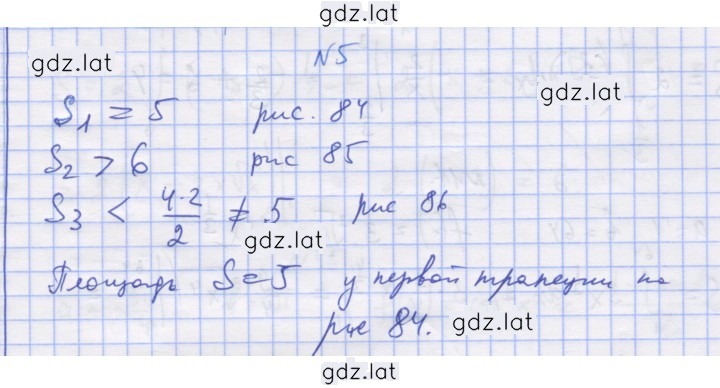 gdz.lat
gdz.lat
N5
gdz.lat
S₁ = 5 рис. 84
S₂ > 6 рис 85
S₃ < 4·2/2 ≠ 5 рис 86
gdz.lat
Площадь S = 5 у первой трапеции на
рис 84.
gdz.lat
gdz.lat